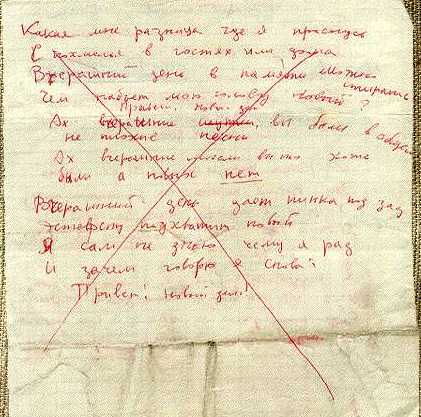 Какая мне разница где я проснусь
С похмелья в гостях или дома
Вчерашний день в памяти
Чем набьет мою голову новый?
Привет! новый день
Ах вчерашние вы были в общем
не плохие песни
Ах вчерашние мысли вы то тоже
были а новых нет
Вчерашний день дает пинка под зад
Эстафету подхватит новый
Я сам не знаю чему я рад
И зачем говорю я снова:
Привет! новый день!